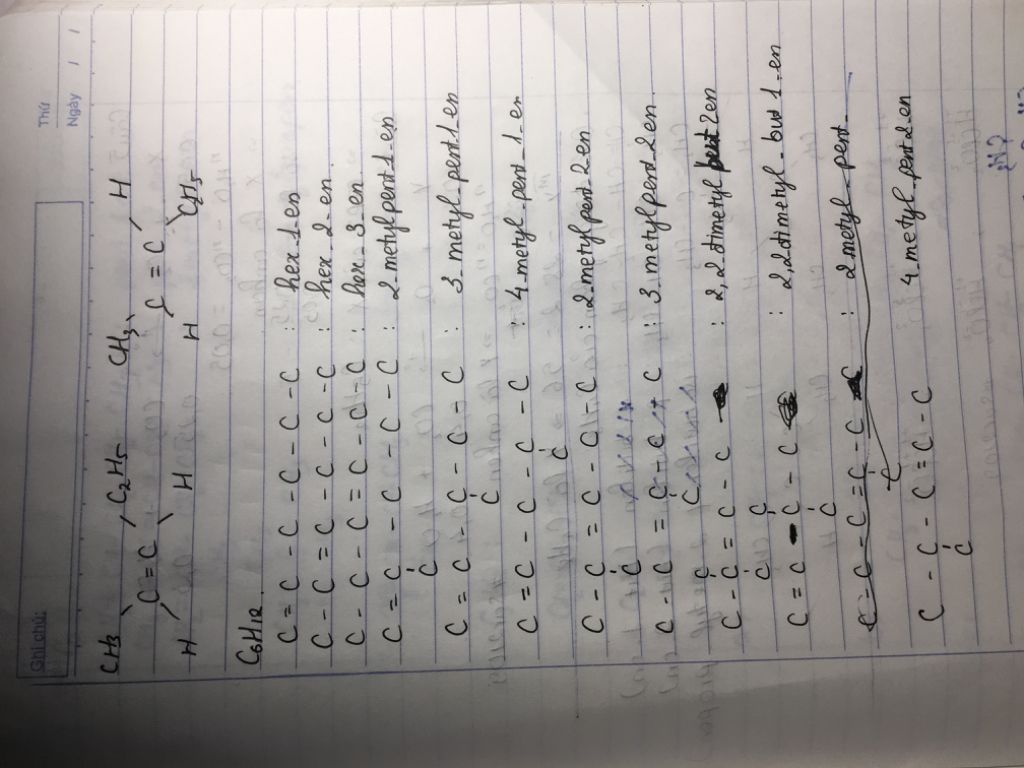 Ghi chú:
Thứ
Ngày / /
CH3 C2H5 CH3 H
C=C C=C
H H H C2H5
C6H12
C = C - C - C - C - C : hex_1_en
C - C = C - C - C - C : hex_2_en
C - C - C = C - C - C : hex_3_en
C = C - C - C - C : 2_metylpent_1_en
C
C = C - C - C - C : 3_metyl_pent_1_en
C
C = C - C - C - C : 4_metyl_pent_1_en
C
C - C = C - C - C : 2_metylpent_2_en
C
C - C = C - C - C : 3_metylpent_2_en
C
C
C - C = C - C : 2,2 dimetyl 2en
C C
C = C - C - C : 2,2 dimetyl_but 1_en
C
C - C - C = C - C : 2 metyl_pent_
C
C - C - C = C - C 4 metyl_pent 2_en
C